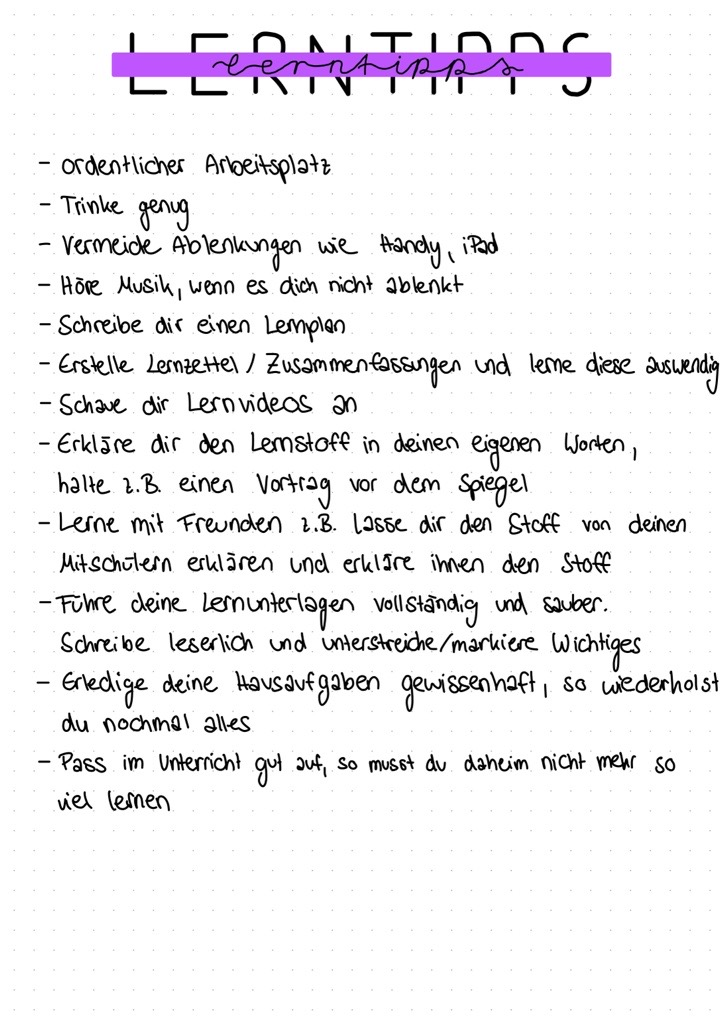 LERNTIPPS
lerntipps
- ordentlicher Arbeitsplatz
- Trinke genug
- Vermeide Ablenkungen wie Handy, iPad
- Höre Musik, wenn es dich nicht ablenkt
- Schreibe dir einen Lernplan
- Erstelle Lernzettel / Zusammenfassungen und lerne diese auswendig
- Schaue dir Lernvideos an
- Erkläre dir den Lernstoff in deinen eigenen Worten,
halte z.B. einen Vortrag vor dem Spiegel
- Lerne mit Freunden z.B. lasse dir den Stoff von deinen
Mitschülern erklären und erkläre ihnen den Stoff
- Führe deine Lernunterlagen vollständig und sauber.
Schreibe leserlich und unterstreiche/markiere Wichtiges
- Erledige deine Hausaufgaben gewissenhaft, so wiederholst
du nochmal alles
- Pass im Unterricht gut auf, so musst du daheim nicht mehr so
viel lernen